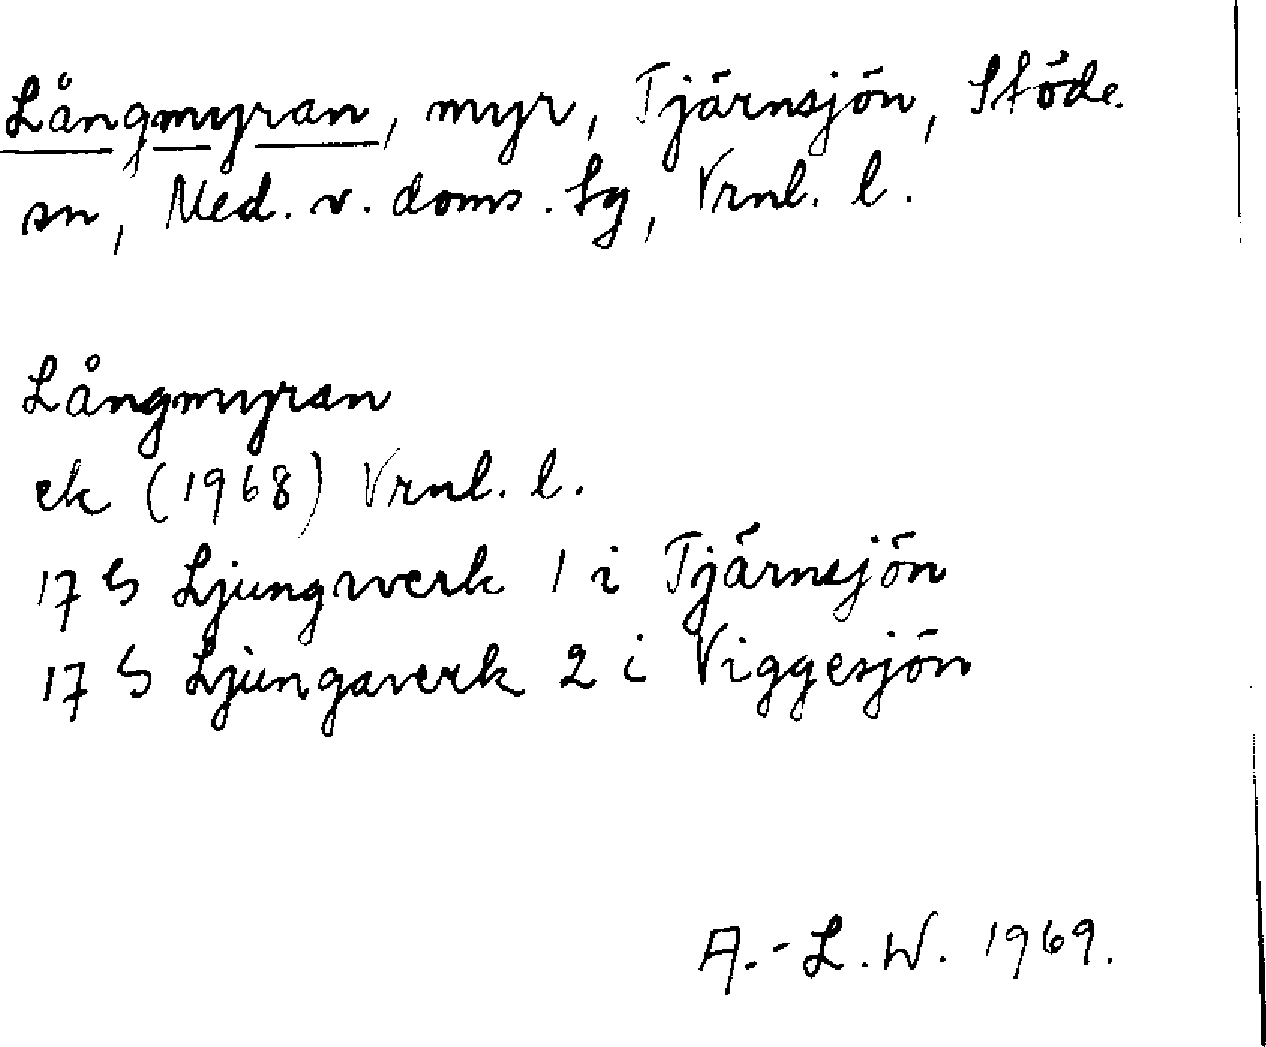 Långmyran, myr, Tjärnsjön, Stöde
sn, Med. v. doms. tg, Vrnl. l.
Långmyran
ek (1968) Vrnl. l.
17 G Ljungverk 1 i Tjärnsjön
17 G Ljungaverk 2 i Viggesjön
A.-L.W. 1969.